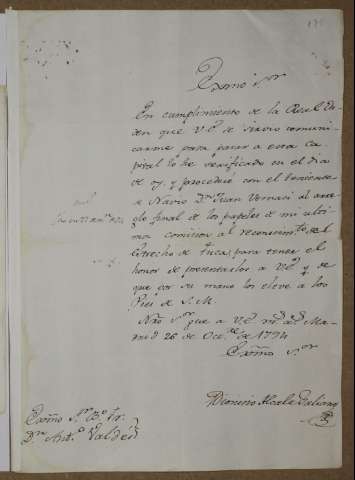 Exmô S.or
En cumplimiento de la Real Or
den que V.E. se sirvio comuni
carme para pasar a esta Ca
pital lo he verificado en el dia
de oy. y procederé con el teniente
de Navio D.n Juan Vernaci al arre
glo final de los papeles de mi ulti
ma comision al reconocim.to del
Estrecho de Fuca, para tener el
honor de presentarlos a V.E. y de
que por su mano los eleve a los
Pies de S. M.
Nrô S.or gue a V.E. m.s a.s Ma
drid 26 de Oct.re de 1794
Exmô S.or
Dionisio Alcala Galiano
Exmô S.r B.o Fr.
D.n Ant.o Valdés